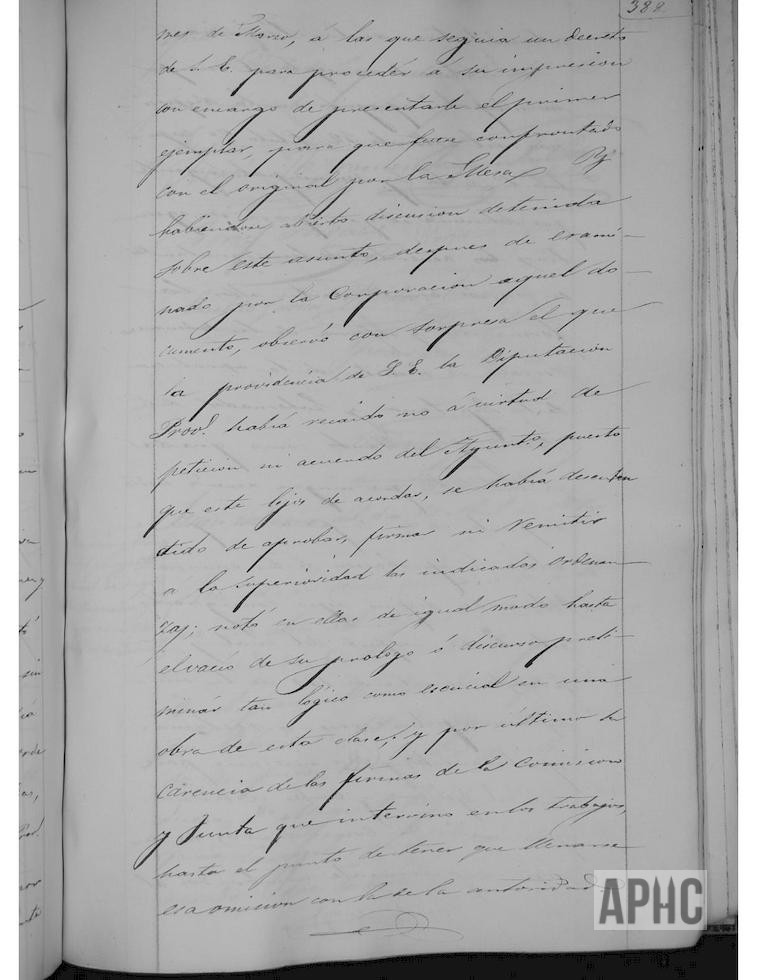 388
mes de Marzo, á las que seguia un decreto
de S. E. para proceder á su impresion
con encargo de presentarle el primer
ejemplar, para que fuera confrontado
con el original por la Mesa. Y
habiendose abierto discusion detenida
sobre este asunto, despues de exami-
nado por la Corporacion aquel do-
cumento, observó con sorpresa el que
la providencia de S. E. la Diputacion
Provl. habia recaido no á virtud de
peticion ni acuerdo del Ayunto., puesto
que este lejos de acordar, se habia desenten
dido de aprobar, firmar ni remitir
a la superioridad las indicadas ordenan
zas; notó en ellas de igual modo hasta
el vacio de su prologo ó discurso preli-
minar tan lógico como esencial en una
obra de esta clase; y por último la
carencia de las firmas de la Comision
y Junta que intervino en los trabajos,
hasta el punto de tener que llenarse
esa omision con la de la autoridad
APHC